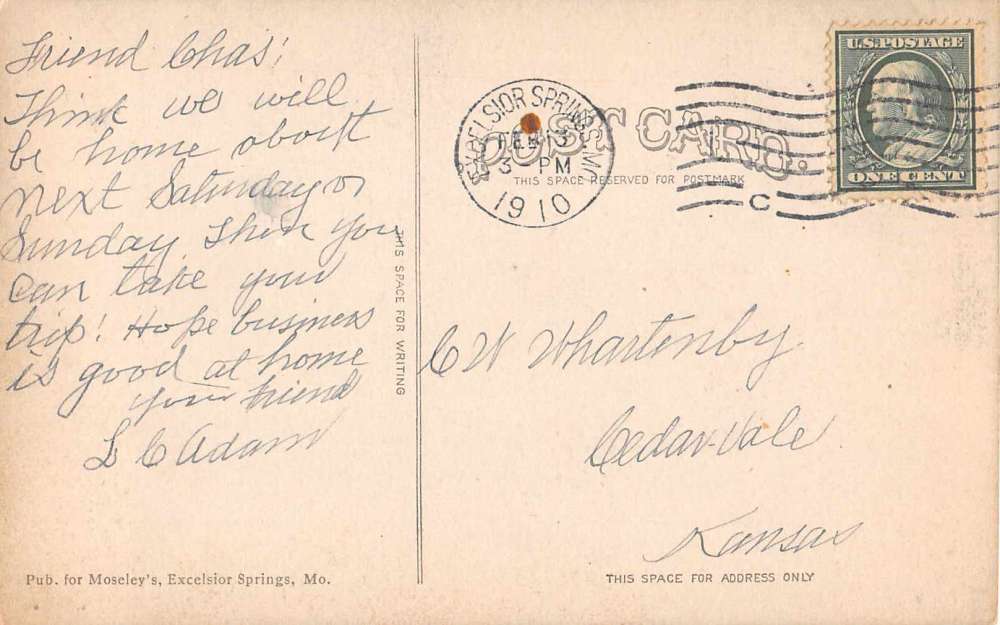 Friend Chas!
Think we will
be home about
next Saturday or
Sunday then you
can take your
trip! Hope business
is good at home
your friend
L C Adam
Pub. for Moseley's, Excelsior Springs, Mo.
THIS SPACE FOR WRITING
POST CARD.
THIS SPACE RESERVED FOR POSTMARK
EXCELSIOR SPRINGS, M
FEB
3 PM
1910
C
U.S. POSTAGE
ONE CENT
C W Whartenby
Cedar Vale
Kansas
THIS SPACE FOR ADDRESS ONLY